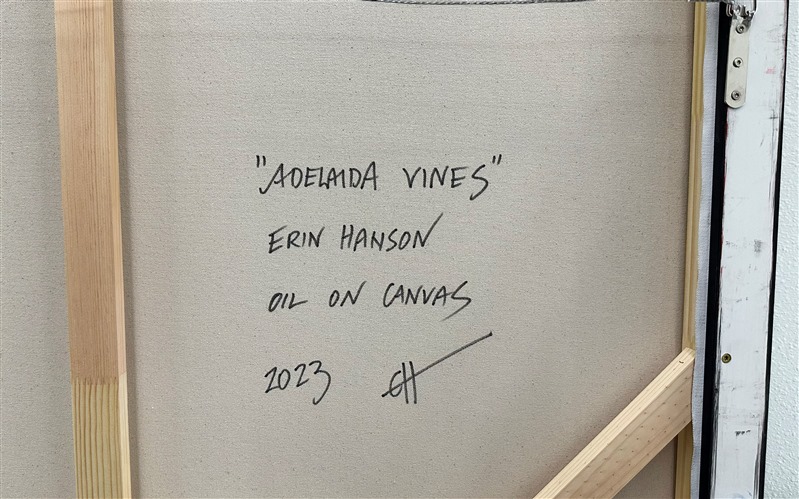 "ADELAIDA VINES"
ERIN HANSON
OIL ON CANVAS
2023 EH